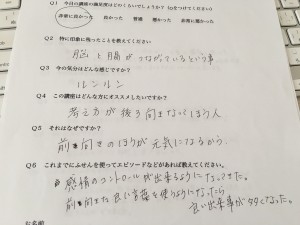 Q1 今日の講座の満足度はどのくらいでしょうか？(○をつけてください)
非常に良かった 良かった 普通 悪かった 非常に悪かった
Q2 特に印象に残ったことを教えてください
脳と腸がつながっているという事
Q3 今の気分はどんな感じですか？
ルンルン
Q4 この講座はどんな方にオススメしたいですか？
考え方が後ろ向きなっしまう人
Q5 それはなぜですか？
前向きのほうが元気になるから.
Q6 これまでにふせんを使ってエピソードなどがあれば教えてください。
感情のコントロールが出来るようになってきた。
前向きな良い言葉を使うようになったら
良い出来事が多くなった。
お名前